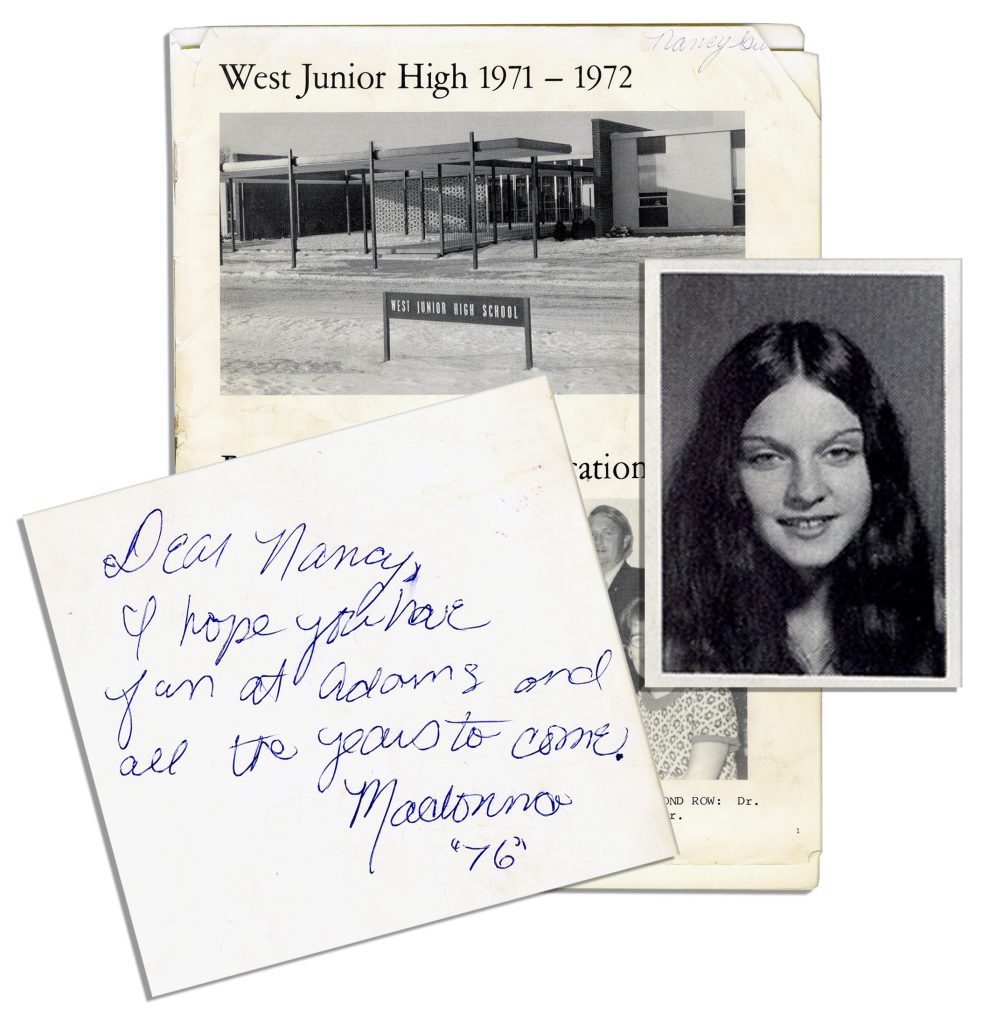 Nancy
West Junior High 1971 – 1972
WEST JUNIOR HIGH SCHOOL
Dear Nancy,
I hope you have
fun at Adams and
all the years to come.
Madonna
"76"
OND ROW: Dr.
r.
1